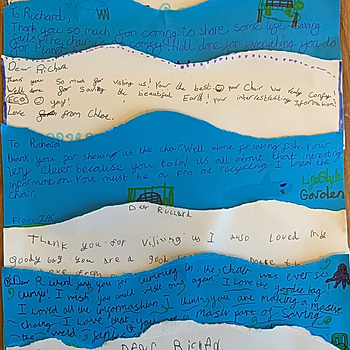 To Richard,
Thank you so much for coming to share some life saving
facts. The chair is so comfy! Well done for everything you do
for Planet
Dear Richard
Thank you So much for visiting us! Your the best your Chair was really Comfy!
Well done for Saving the beautiful Earth! your interresting Information!
EGO yay!
Love from Chloe.
To Richard
thank you for showing us the chair. Well done for saving Your
very Clever because you told us all about that intersting
information. You must be a pro at recycling. I love the
chair.
LifeStyle
Garden
From ZAC
Dear Richard
Thank you for Visiting us I also loved the
goody bag you are a good
Dear Richard, thank you for coming in, the chair was ever so
comfy! I wish you could visit our again. I love the goodie bag
I loved all the information. I think you are making a massive
change. I love that you are a massive part of saving
the world
Dear Richard